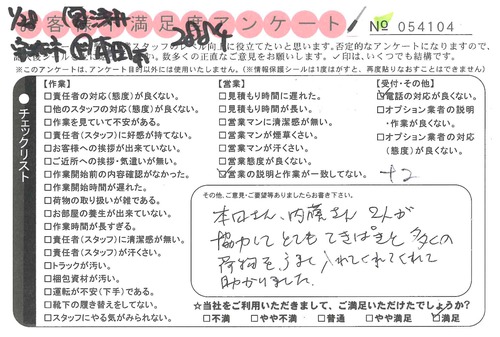 お客様不満足度アンケート
No 054104
1/28
スタッフのレベル向上に役立てたいと思います。否定的なアンケートになりますので、
数多くの正直なご意見をお願いします。✓印は、いくつでも結構です。
※このアンケートは、アンケート目的以外には使用いたしません。(※情報保護シールは1度はがすと、再度貼りなおすことはできません)
チェックリスト
【作業】
□責任者の対応(態度)が良くない。
□他のスタッフの対応(態度)が良くない。
□作業を見ていて不安がある。
□責任者(スタッフ)に好感が持てない。
□お客様への挨拶が出来ていない。
□ご近所への挨拶・気遣いが無い。
□作業開始前の内容確認がなかった。
□作業開始時間が遅れた。
□荷物の取り扱いが雑である。
□お部屋の養生が出来ていない。
□作業時間が長すぎる。
□責任者(スタッフ)に清潔感が無い。
□責任者(スタッフ)が汗くさい。
□トラックが汚い。
□梱包資材が汚い。
□運転が不安(下手)である。
□靴下の履き替えをしてない。
□スタッフにやる気がみられない。
【営業】
□見積もり時間に遅れた。
□見積もり時間が長い。
□営業マンに清潔感が無い。
□営業マンが煙草くさい。
□営業マンが汗くさい。
□営業態度が良くない。
☑営業の説明と作業が一致してない。
【受付・その他】
☑電話の対応が良くない。
□オプション業者の説明
・作業が良くない。
□オプション業者の対応
(態度)が良くない。
+2
その他、ご意見・ご要望等ありましたらお書き下さい。
本田さん、内藤さん 2人が
協力して とても てきぱきと 多くの
荷物を うまく 入れてくれてくれて
助かりました。
☆当社をご利用いただきまして、ご満足いただけたでしょうか?
□不満 □やや不満 □普通 □やや満足 ☑満足